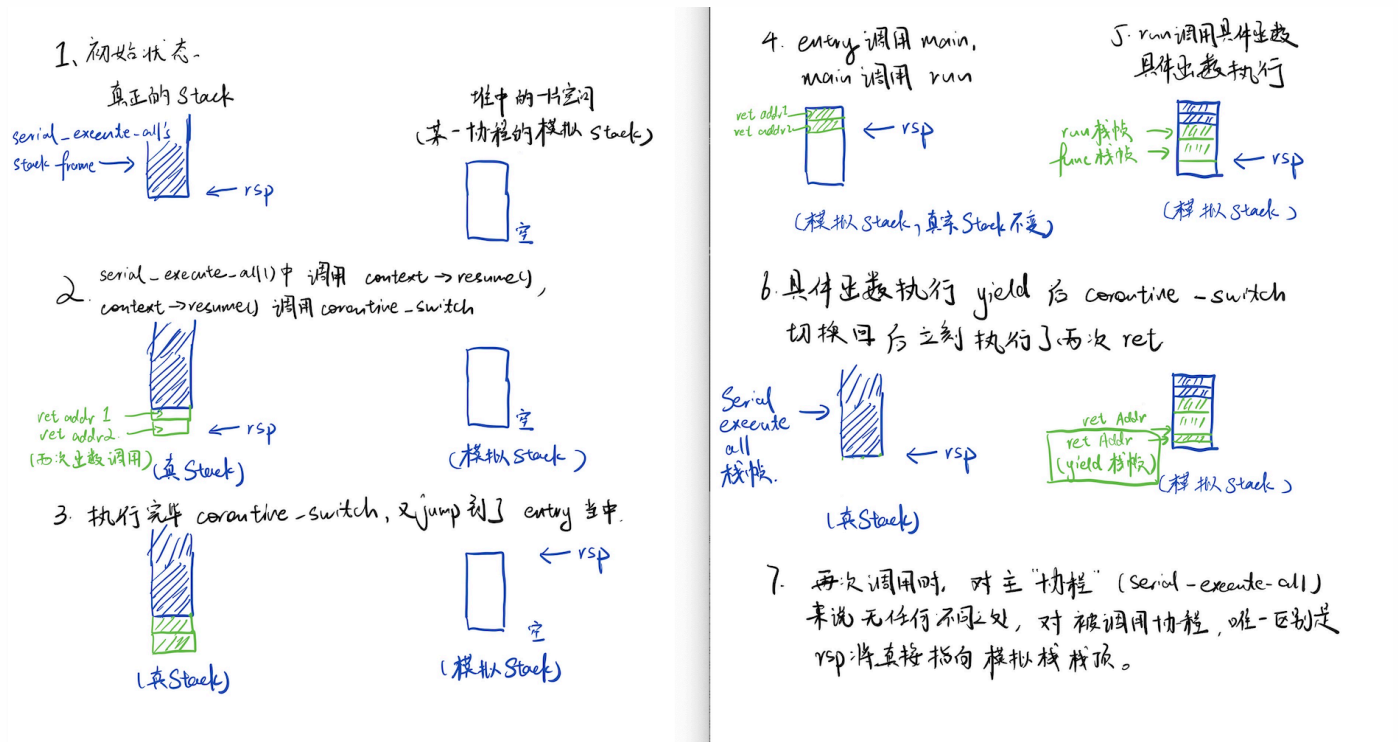 1、初始状态.
真正的 Stack
serial_execute-all's
stack frame
rsp
堆中的一片空间
(某一协程的模拟 Stack)
空
2. serial_execute_all()中 调用 context→resume(),
context→resume() 调用 coroutine_switch
ret addr 1
ret addr2.
(两次函数调用)
rsp
(真Stack)
空
(模拟Stack)
3. 执行完毕 coroutine_switch, 又jump到了 entry 当中.
(真Stack)
rsp
空
(模拟Stack)
4. entry 调用 main,
main 调用 run
ret addr1
ret addr2
rsp
(模拟Stack, 真实Stack不变)
5. run调用具体函数
具体函数执行
run栈帧
func栈帧
rsp
(模拟Stack)
6. 具体函数执行 yield 后 coroutine_switch
切换回后立刻执行了两次 ret
Serial
execute
all
栈帧.
rsp
(真Stack)
ret Addr
ret Addr
(yield 栈帧)
(模拟Stack)
7. 再次调用时, 对主"协程" (serial-execute-all)
来说无任何不同之处, 对被调用协程, 唯一区别是
rsp将直接指向模拟栈栈顶。